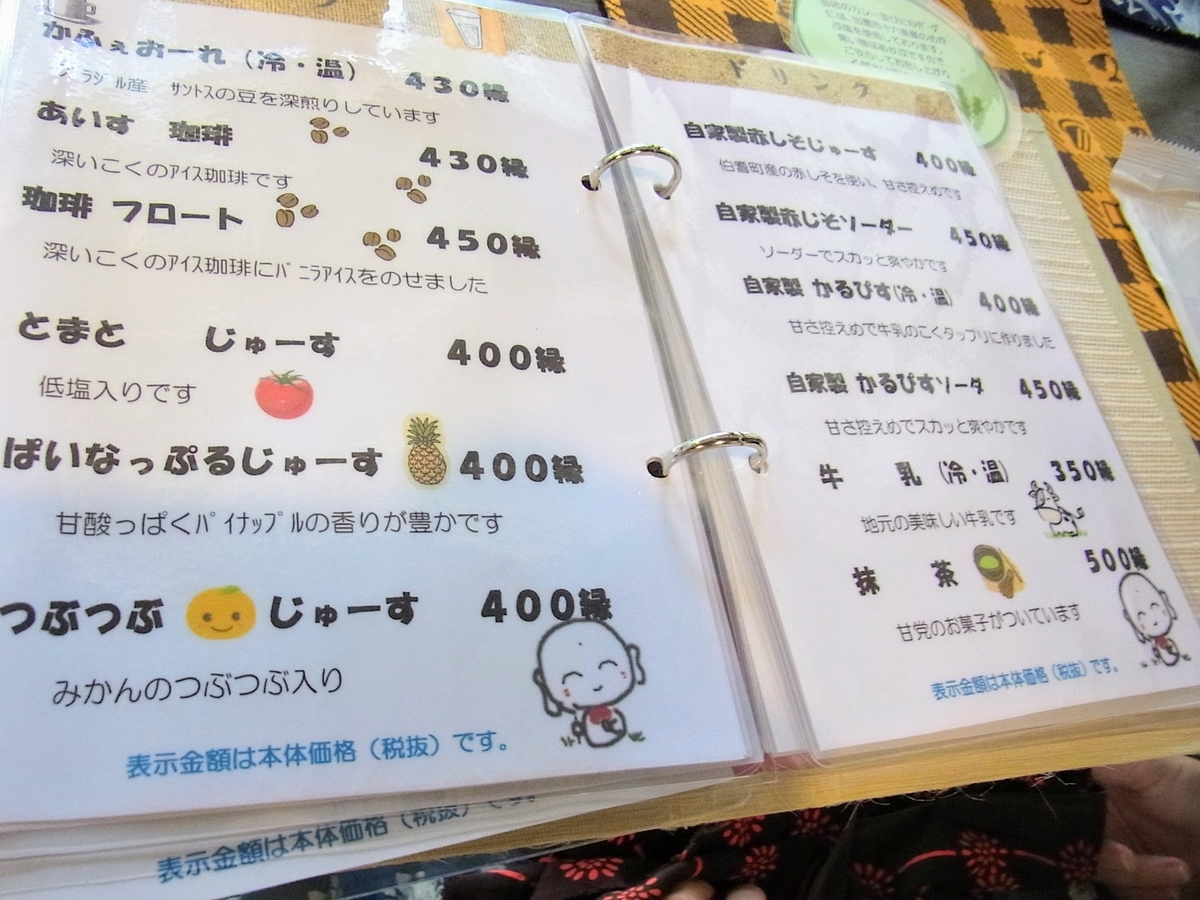 かふぇおーれ（冷・温） 430縁
ブラジル産 サントスの豆を深煎りしています
あいす 珈琲 430縁
深いこくのアイス珈琲です
珈琲 フロート 450縁
深いこくのアイス珈琲にバニラアイスをのせました
とまと じゅーす 400縁
低塩入りです
ぱいなっぷるじゅーす 400縁
甘酸っぱくパイナップルの香りが豊かです
つぶつぶ じゅーす 400縁
みかんのつぶつぶ入り
表示金額は本体価格（税抜）です。
表示金額は本体価格（税抜）です。
ドリンク
自家製赤しそじゅーす 400縁
伯耆町産の赤しそを使い、甘さ控えめです
自家製赤じそソーダー 450縁
ソーダーでスカッと爽やかです
自家製 かるぴす（冷・温） 400縁
甘さ控えめで牛乳のこくタップリに作りました
自家製 かるぴすソーダ 450縁
甘さ控えめでスカッと爽やかです
牛 乳（冷・温） 350縁
地元の美味しい牛乳です
抹 茶 500縁
甘党のお菓子がついています
表示金額は本体価格（税抜）です。